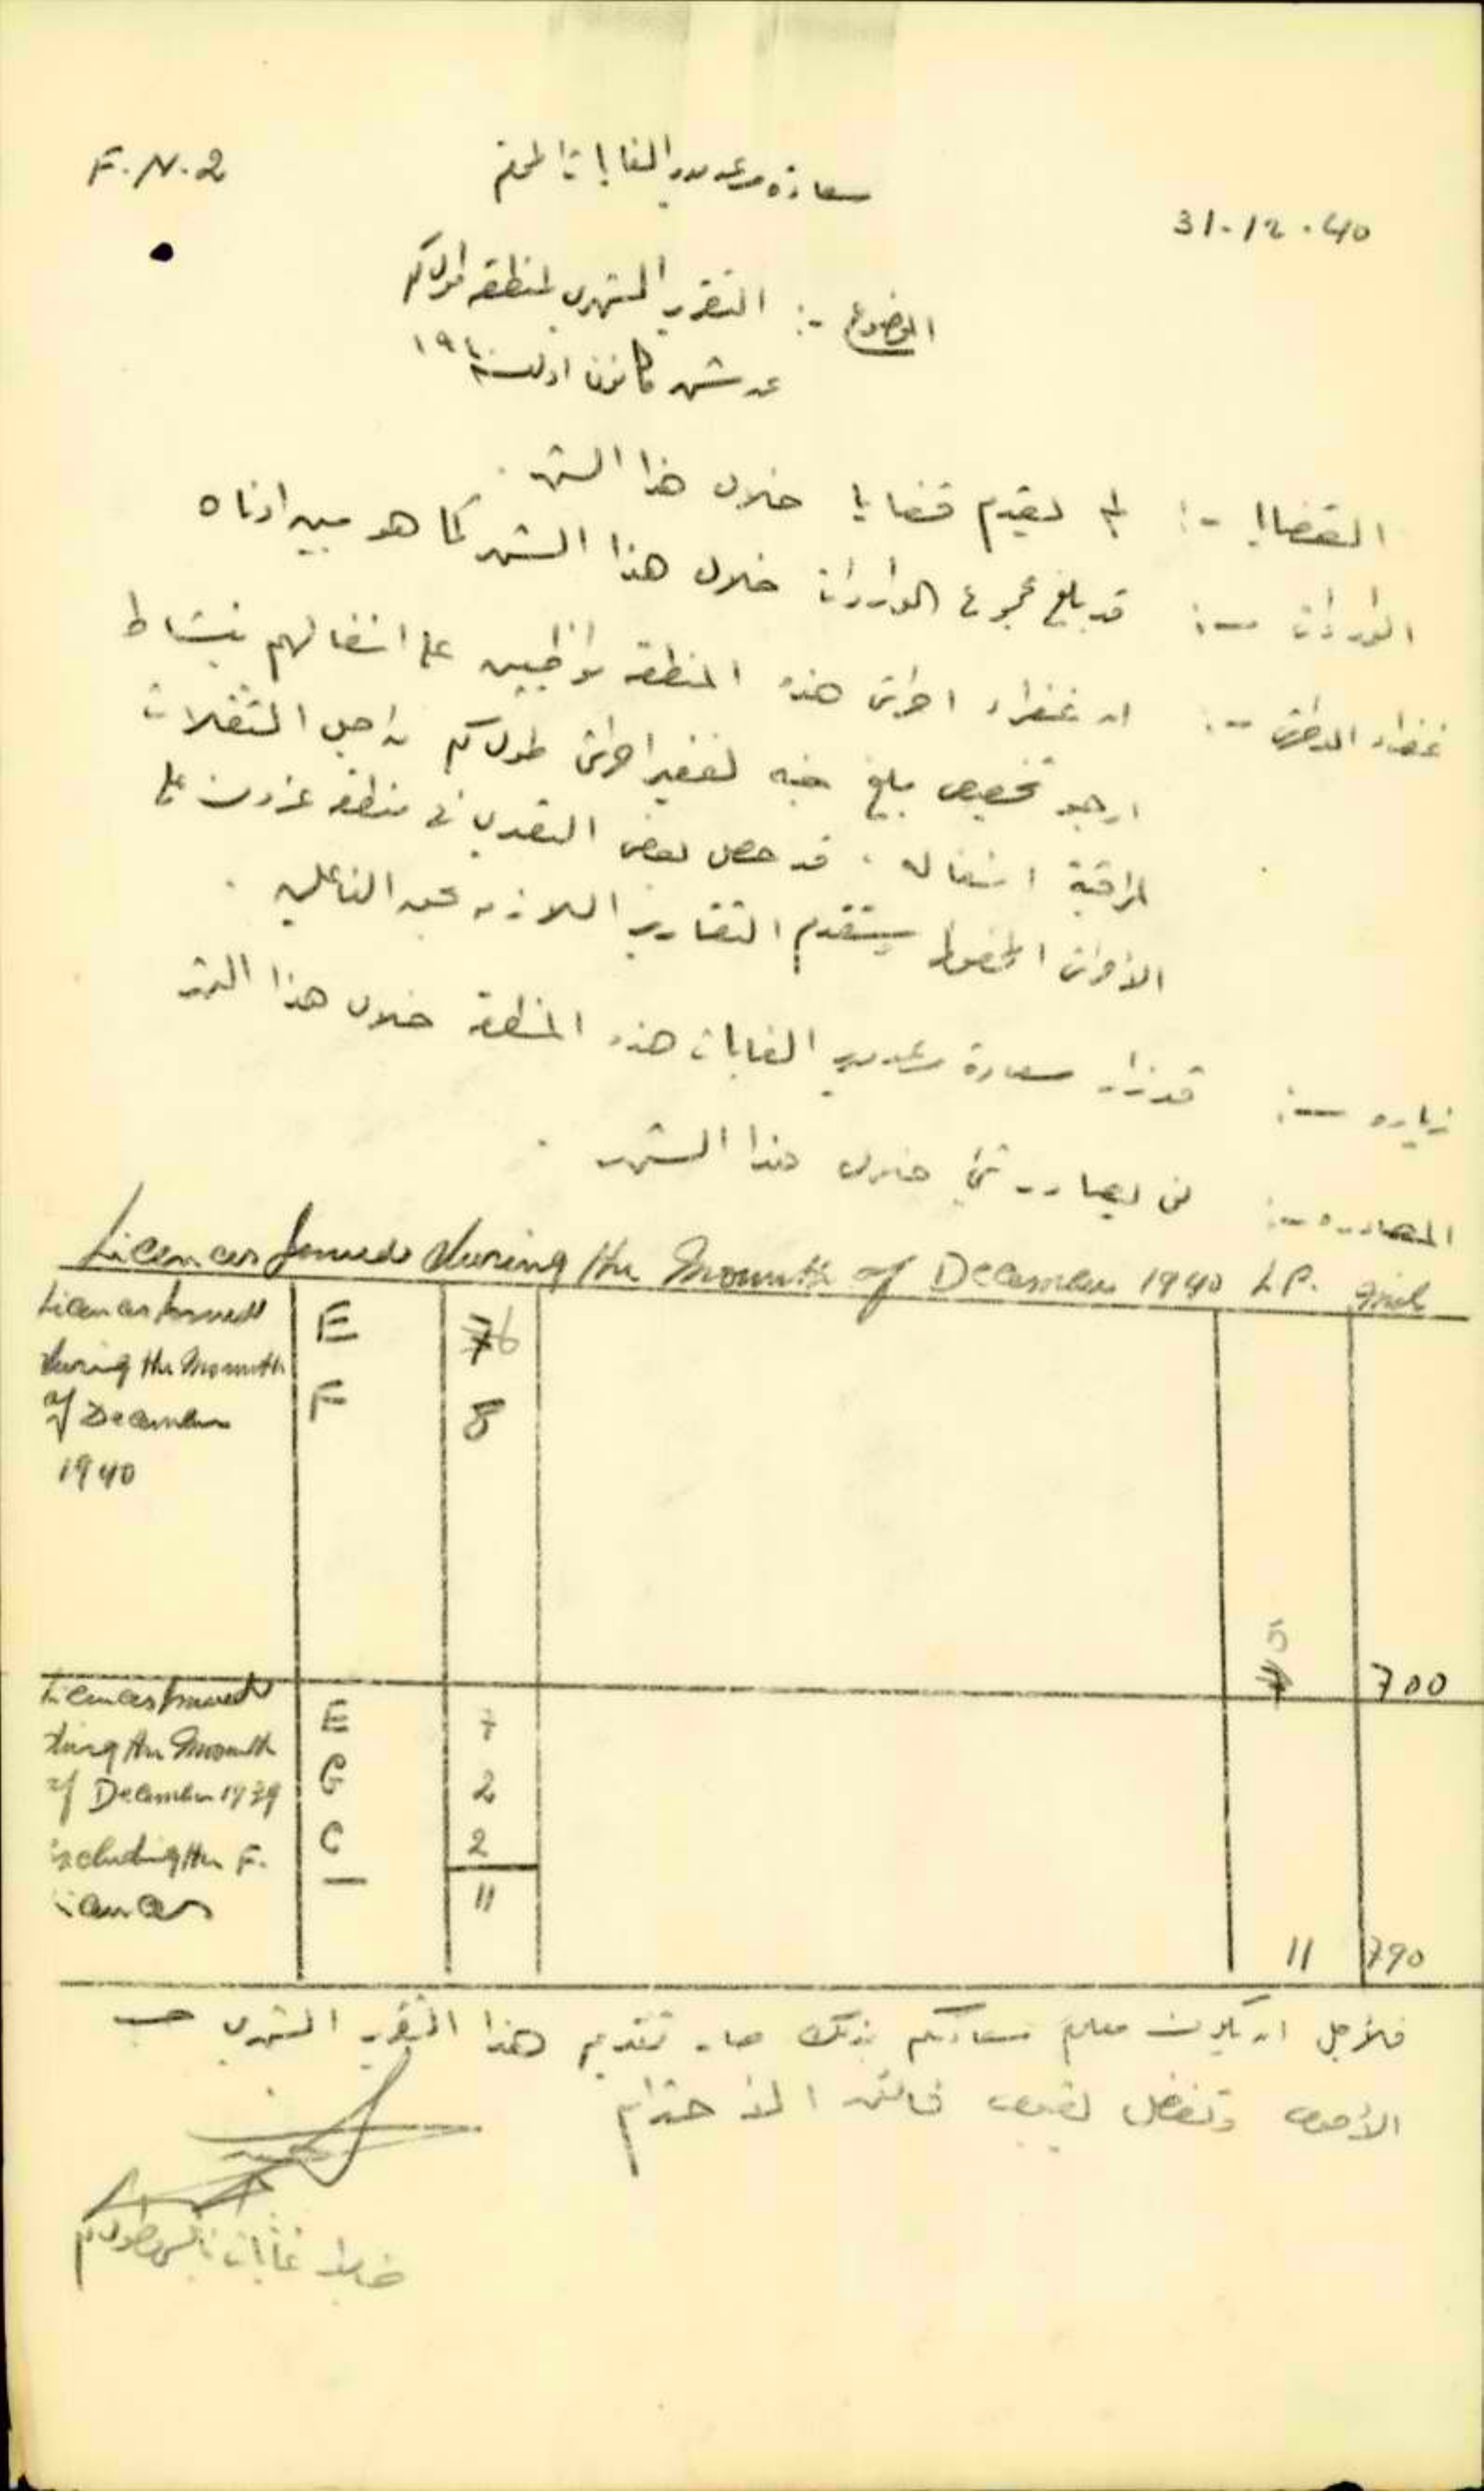 F.N.2
سعادة مساعد مدير الغابات المحترم
31.12.40
الموضوع :- التقرير الشهري لمنطقة طولكرم
عن شهر كانون اول سنة ١٩٤٠
القضايا :- لم يقدم قضايا خلال هذا الشهر .
الواردات :- قد بلغ مجموع الواردات خلال هذا الشهر كما هو مبين ادناه
غفراء الاحراش :- ان غفراء احراش هذه المنطقة مواظبين على اشغالهم بنشاط
ارجو تخصيص مبلغ جنيه لغفير احراش طولكرم من اجل التنقلات
لمراقبة اشغاله . قد حصل بعض التعدي في منطقة عزون على
الأحراش المحفوظ سيتقدم التقارير اللازمة بحق الفاعلين .
زياره :- قد زار سعادة مساعد مدير الغابات هذه المنطقة خلال هذا الشهر
المصادره :- لم يصادر شئ خلال هذا الشهر .
Licences Issued during the Mounth of December 1940 L.P. Mils
Licences Issued E 76
during the Mounth F 8
of December
1940
5 700
Licences Issued E 7
during the Mounth G 2
of December 1939 C 2
including the F. — 11
licences
11 790
فلأجل ان يكون معلوم سعادتكم بذلك صار تقديم هذا التقرير الشهري حسب
الأصول وتفضلو بقبول فائق الاحترام
ضابط غابات نابلس وطولكرم